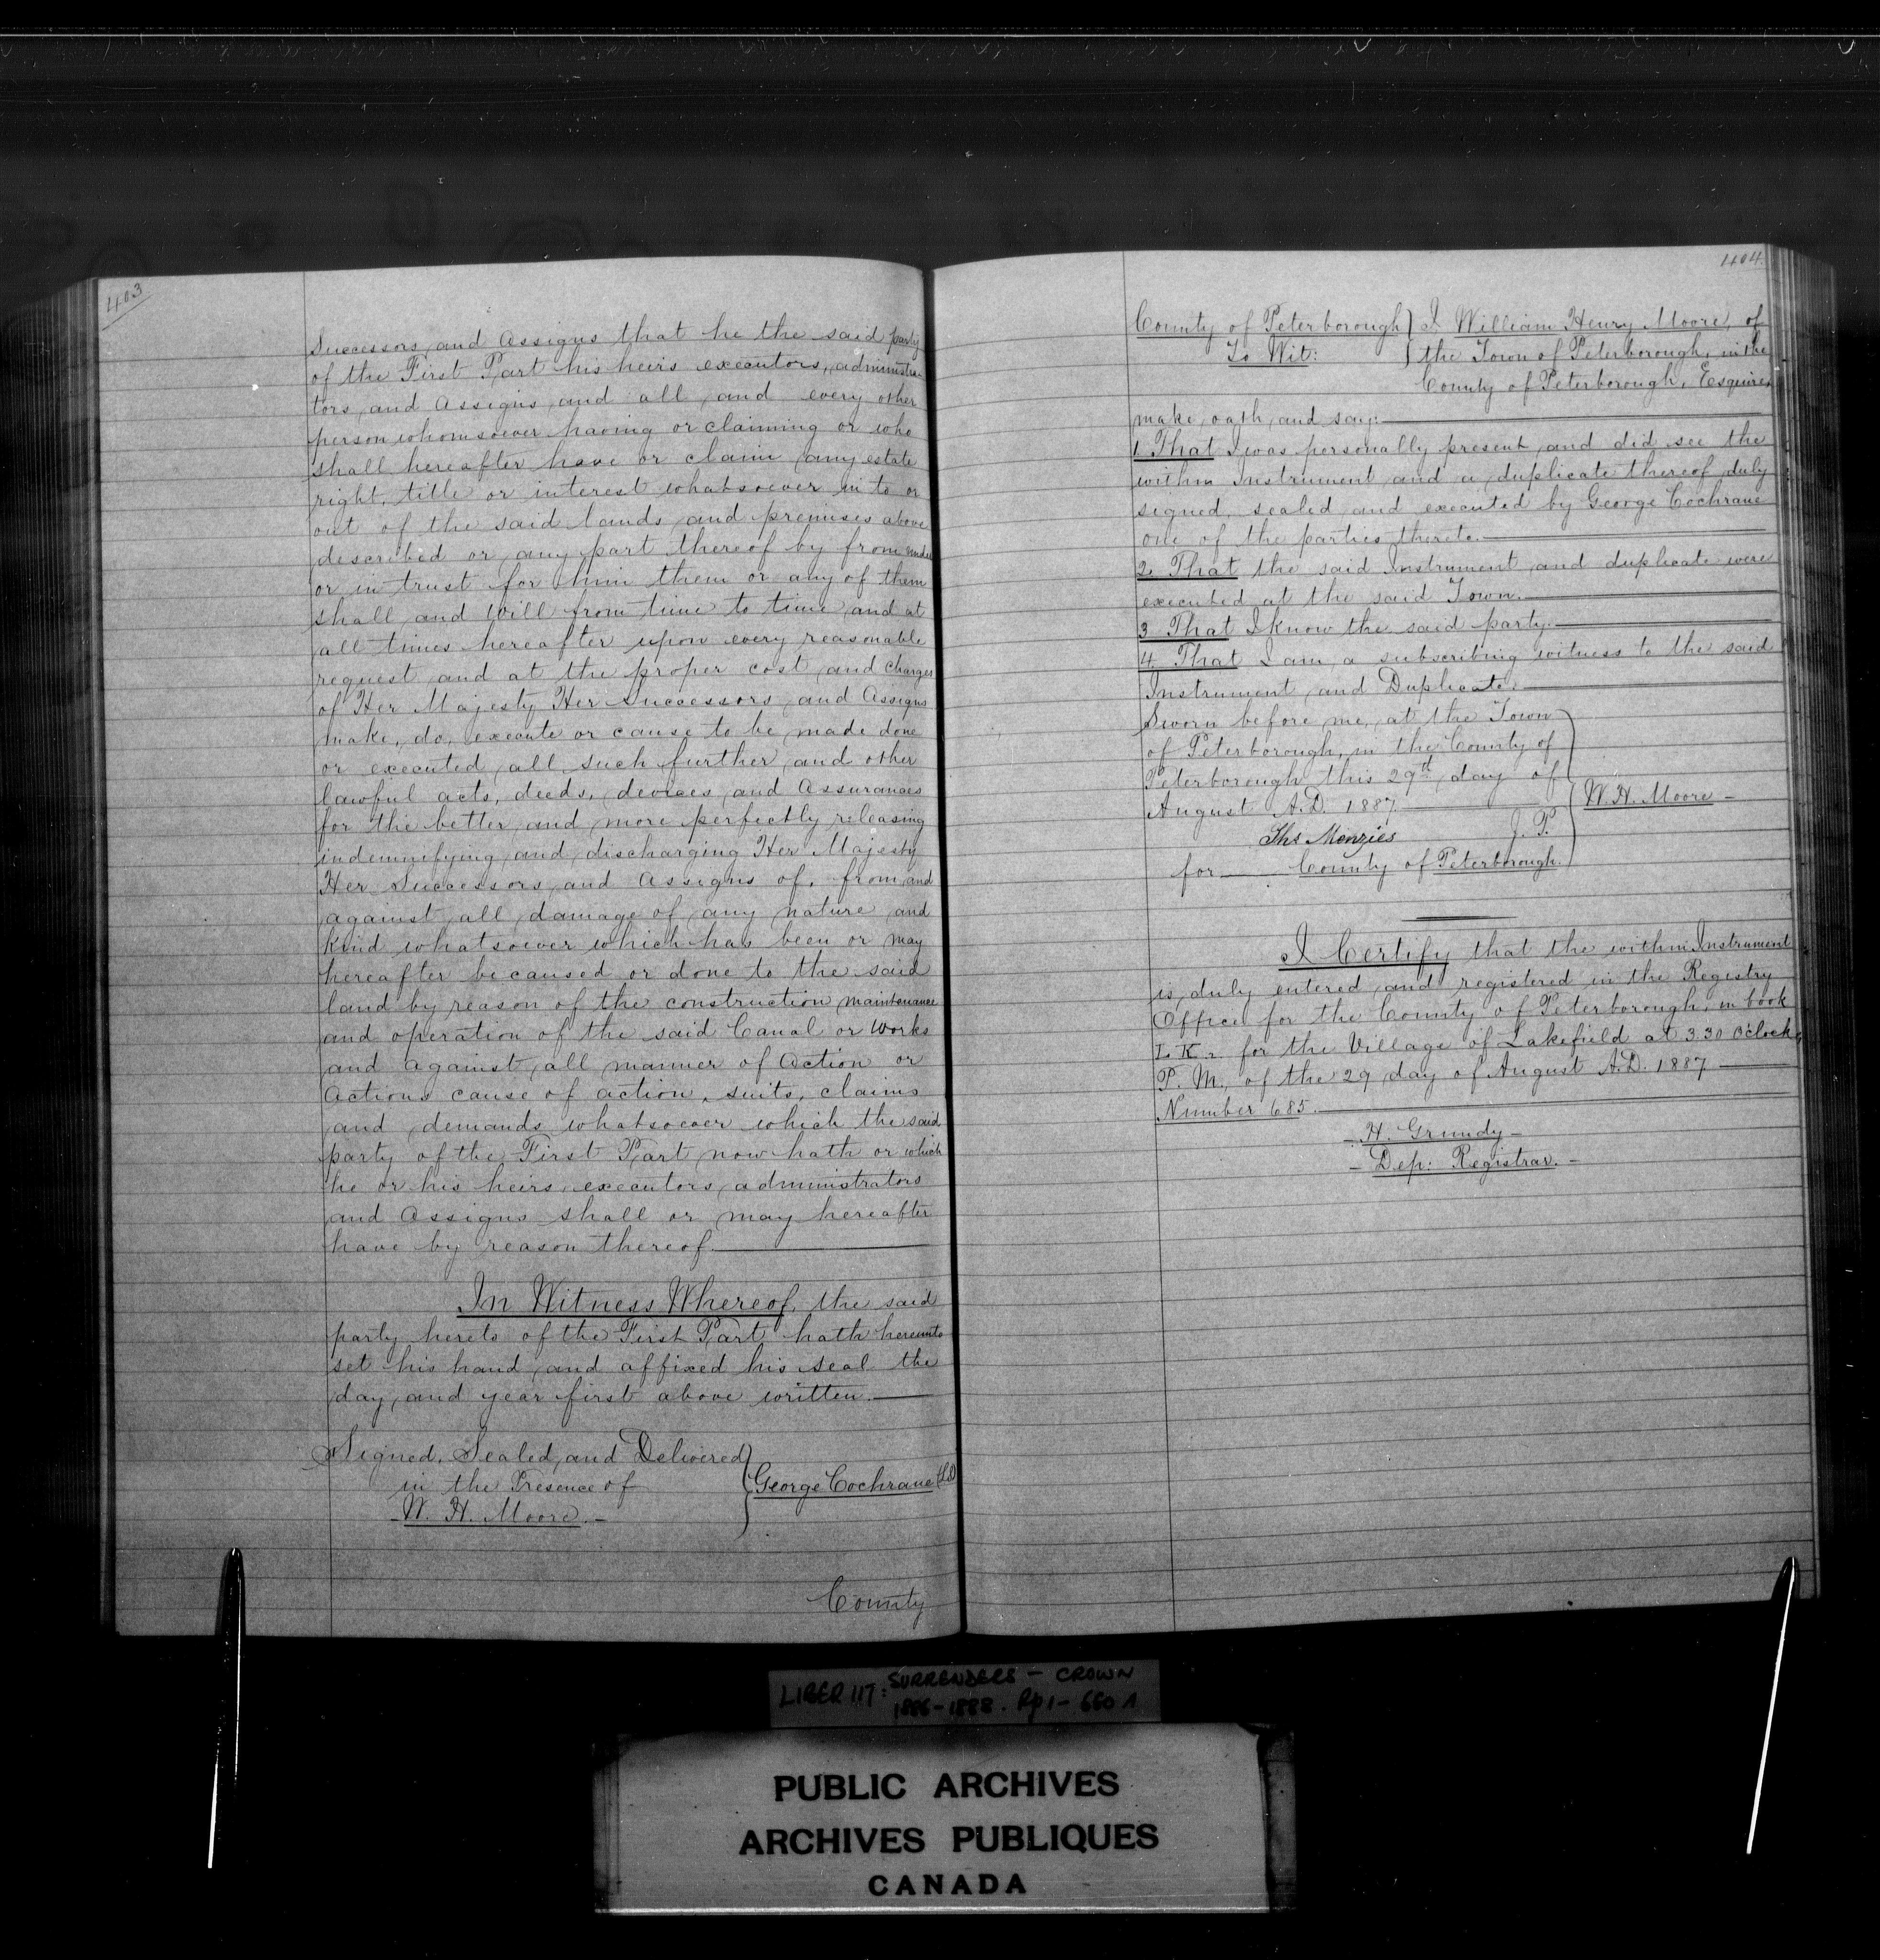 403
Successors and Assigns that he the said party
of the First Part his heirs executors, administra-
tors and Assigns and all and every other
person whomsoever having or claiming or who
shall hereafter have or claim any estate
right, title or interest whatsoever in to or
out of the said lands and premises above
described or any part thereof by from under
or in trust for him them or any of them
shall and Will from time to time and at
all times hereafter upon every reasonable
request and at the proper cost and charges
of Her Majesty Her Successors and Assigns
make, do, execute or cause to be made done
or executed all such further and other
lawful acts, deeds, devices and Assurances
for the better and more perfectly releasing
indemnifying and discharging Her Majesty
Her Successors and Assigns of, from and
against all damage of any nature and
Kind whatsoever which has been or may
hereafter be caused or done to the said
land by reason of the construction maintenance
and operation of the said Canal or Works
and Against all manner of Action or
Actions cause of action, suits, claims
and demands whatsoever which the said
party of the First Part now hath or which
he or his heirs executors administrators
and Assigns shall or may hereafter
have by reason thereof.
In Witness Whereof, the said
party hereto of the First Part hath hereunto
set his hand and affixed his seal the
day and year first above written.
Signed, Sealed and Delivered
in the Presence of
W. H. Moore.
George Cochrane
County
404.
County of Peterborough } I William Henry Moore, of
To Wit: } the Town of Peterborough, in the
County of Peterborough, Esquire,
make oath and say:
1. That I was personally present and did see the
within Instrument and a duplicate thereof duly
signed, sealed and executed by George Cochrane
one of the parties thereto.
2. That the said Instrument and duplicate were
executed at the said Town.
3 That I know the said party.
4. That I am a subscribing witness to the said
Instrument and Duplicate.
Sworn before me, at the Town
of Peterborough, in the County of
Peterborough this 29th day of
August A.D. 1887.
W. H. Moore
Ths Menzies J. P.
for County of Peterborough.
I Certify that the within Instrument
is duly entered and registered in the Registry
Office for the County of Peterborough, in book
for the Village of Lakefield at 3.30 O'clock,
P. M., of the 29 day of August A.D. 1887
Number 685.
H. Grundy
Dep: Registrar.
LIBER 117: SURRENDERS - CROWN
1886-1888. Pp 1-660
PUBLIC ARCHIVES
ARCHIVES PUBLIQUES
CANADA